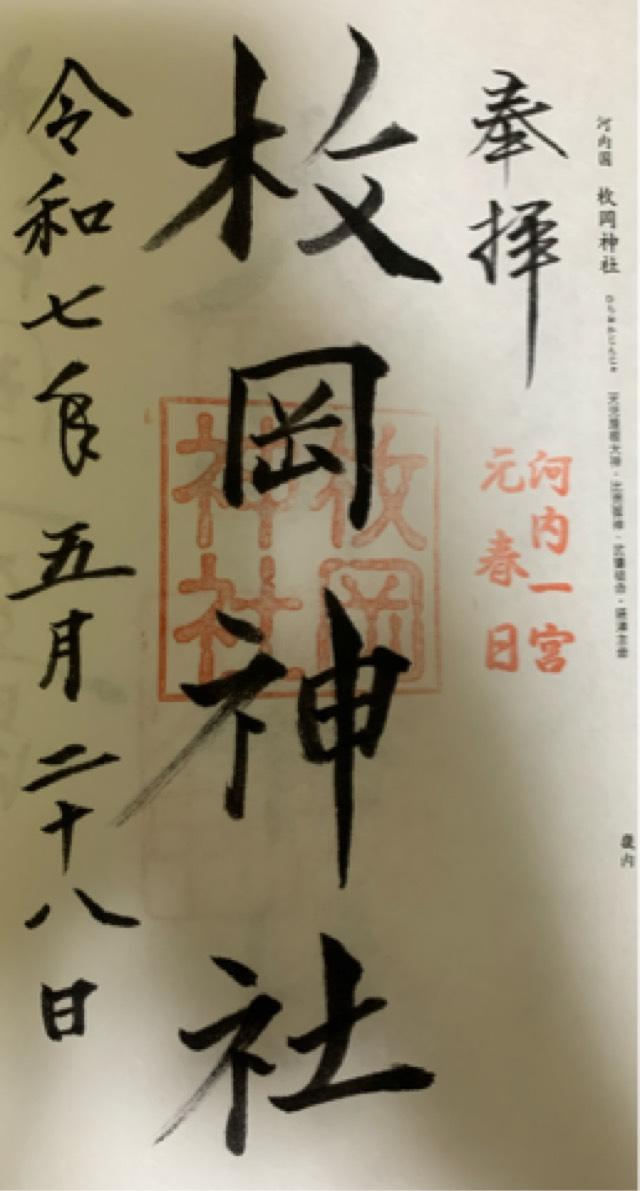 河内國 枚岡神社 ひらおかじんじゃ 天児屋根大神・比売御神・武甕槌命・経津主命
畿内
奉拝
河内一宮
元春日
枚岡神社
枚岡
神社
令和七年五月二十八日